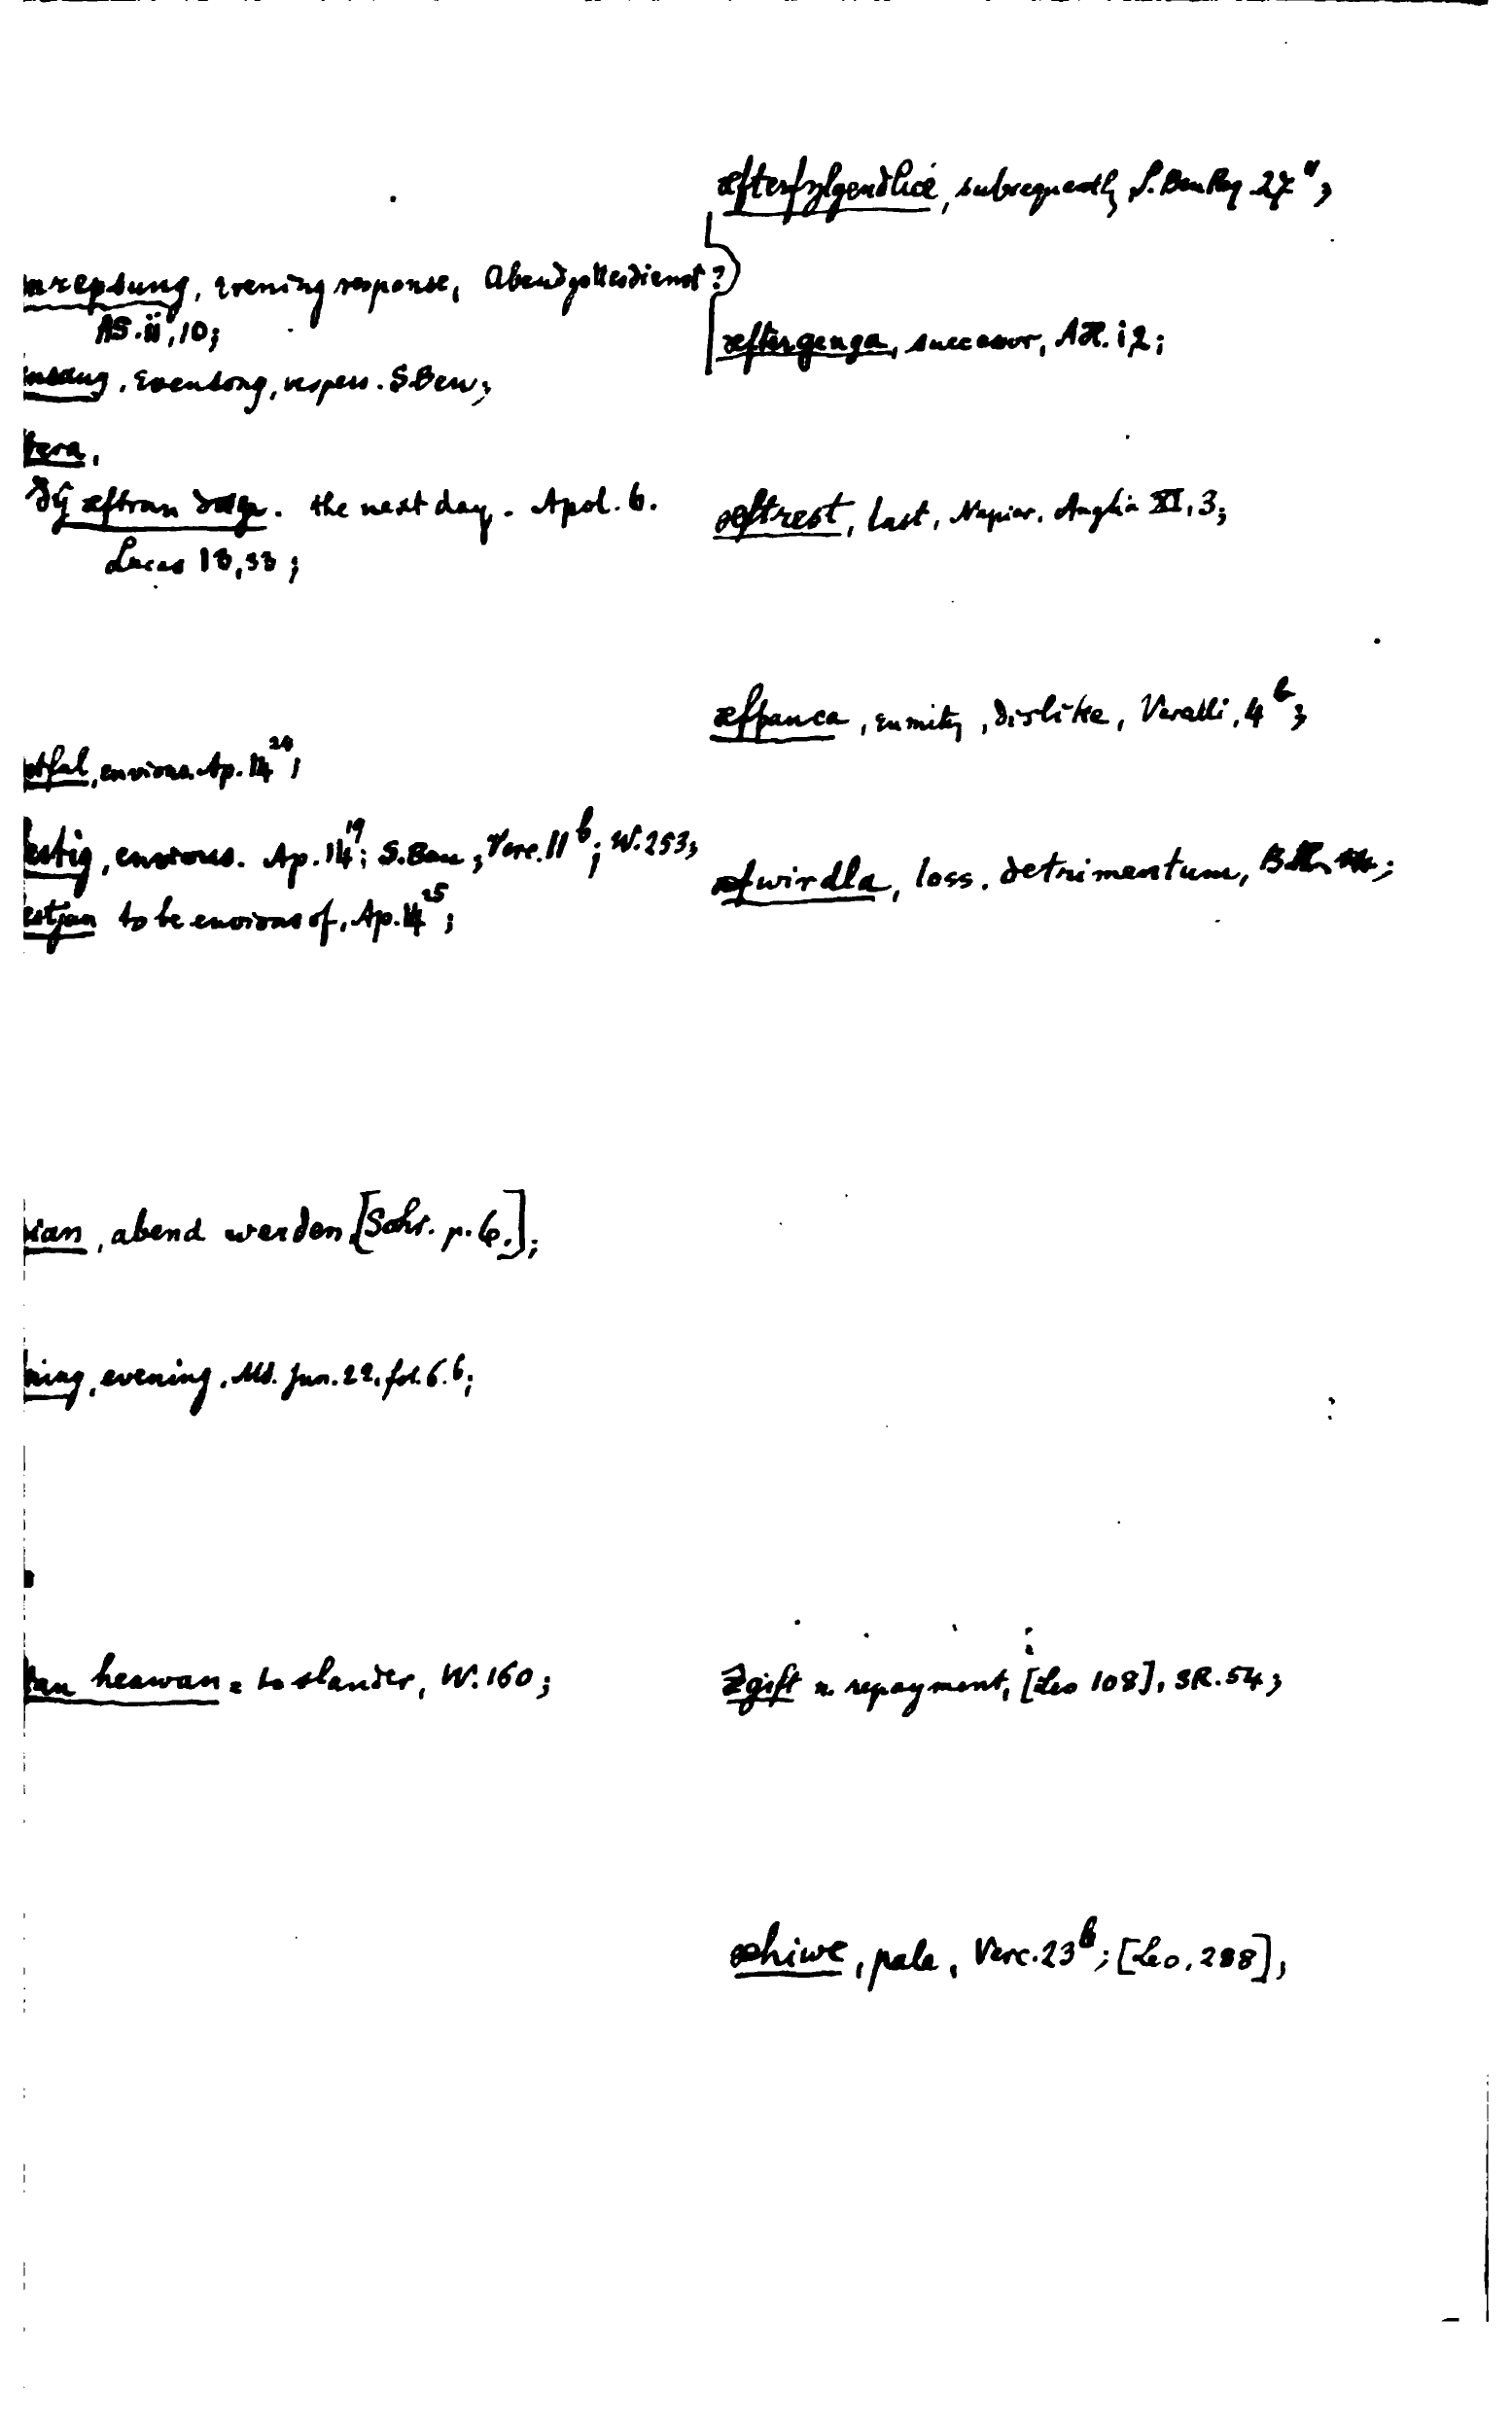 æfterfylgendlice, subsequently S. Ben Reg 27";
nrepsung, evening response, Abendgottesdienst?)
AS. ii, 10;
æftergenga, successor, ÆH. i 2;
nsang, Evensong, vespers. S.Ben;
tera,
ðȳ æftran dæge. the next day. Apol. 6.
æftrest, last, Napier, Anglia XI, 3;
Lucas 13,33;
æfþanca, enmity, dislike, Vercelli, 4b;
stful, envious. Ap. 14 24;
estig, envious. Ap. 14 19; S.Ben; Verc. 11 b; W. 253;
æfwirdla, loss. detrimentum,
estjan to be envious of, Ap. 14 25;
nian, abend werden [Schr. p. 6.];
ning, evening. MS. Jun. 22. fol. 6. b;
tan heawan = to slander, W. 160;
Ægift n. repayment, [Leo 108], SR. 54;
æhiwe, pale, Verc. 23 b; [Leo, 288];